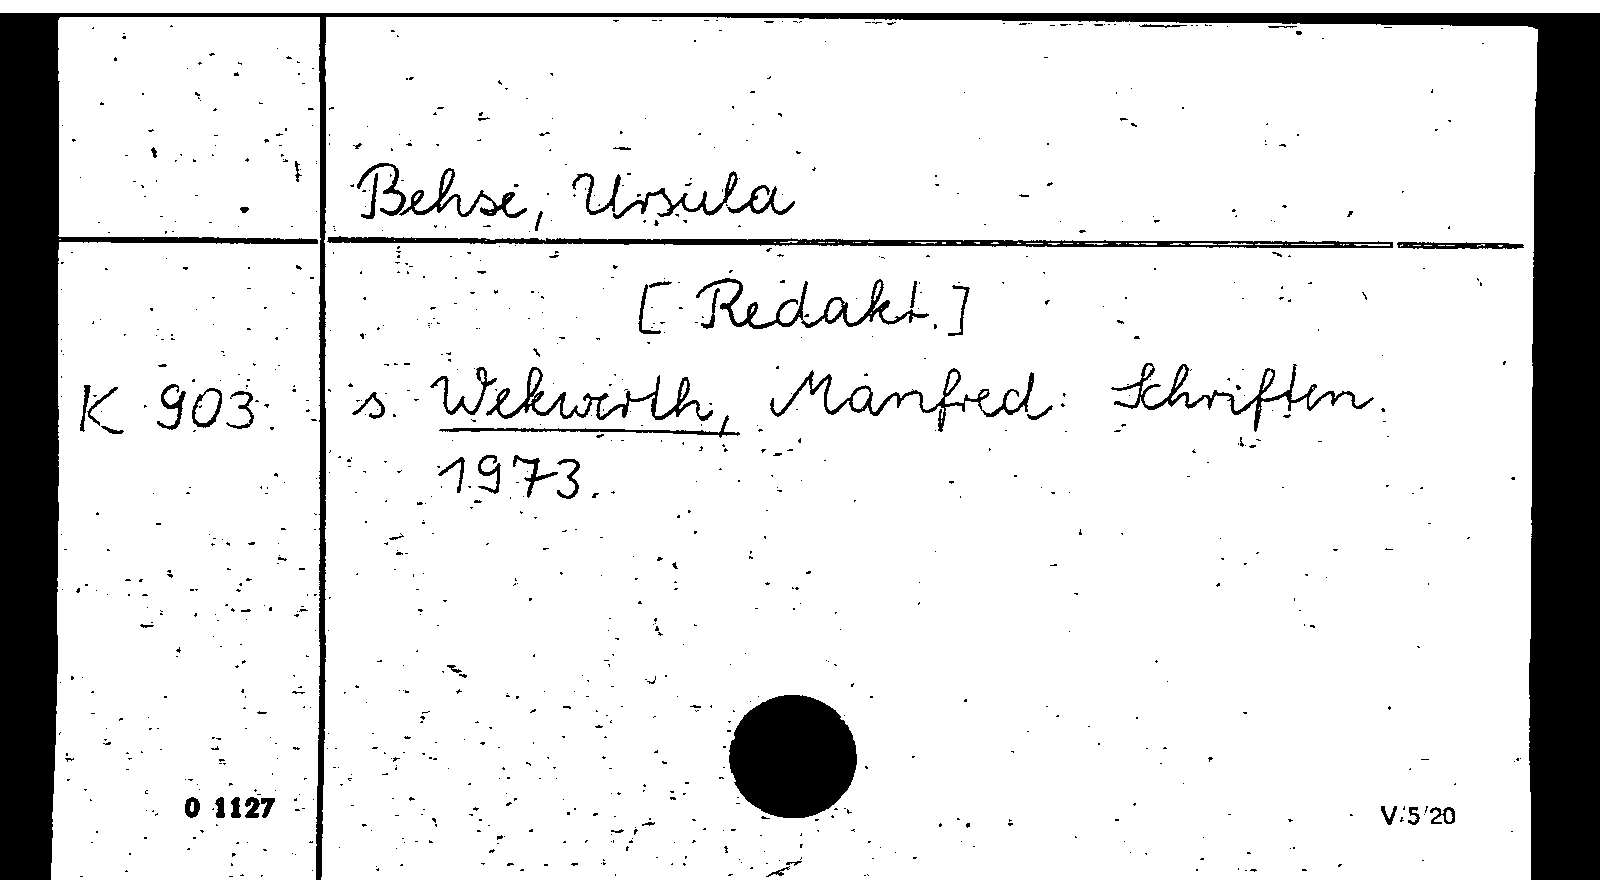 Behse, Ursula
[Redakt.]
K 903 s. Wekwerth, Manfred: Schriften.
1973.
0 1127
V/5/20